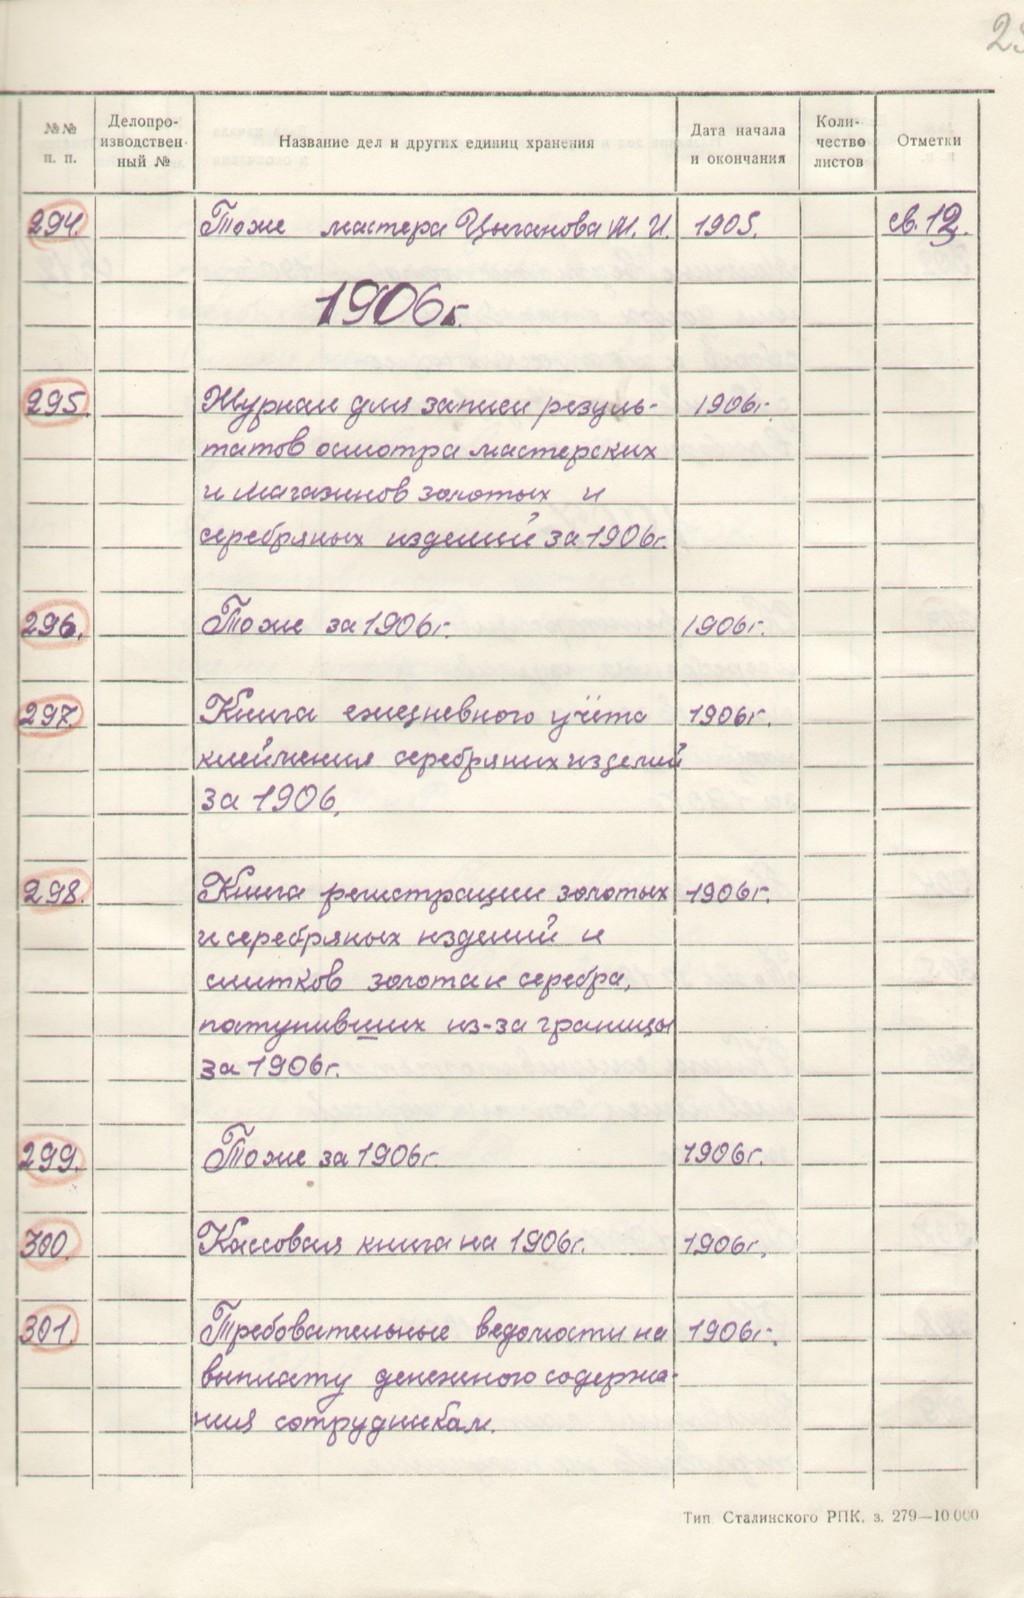 №№ п. п. Делопро-изводствен-ный № Название дел и других единиц хранения Дата начала и окончания Коли-чество листов Отметки
294. Тоже мастера Цыганова М. И. 1905. св. 12.
1906г.
295. Журнал для записи резуль- 1906г.
татов осмотра мастерских
и магазинов золотых и
серебряных изделий за 1906г.
296. Тоже за 1906г. 1906г.
297. Книга ежедневного учёта 1906г.
клеймения серебряных изделий
за 1906.
298. Книга регистрации золотых 1906г.
и серебряных изделий и
слитков золота и серебра,
поступивших из-за границы
за 1906г.
299. Тоже за 1906г. 1906г.
300. Кассовая книга на 1906г. 1906г.
301. Требовательные ведомости на 1906г.
выплату денежного содержа-
ния сотрудникам.
Тип. Сталинского РПК. з. 279—10 000